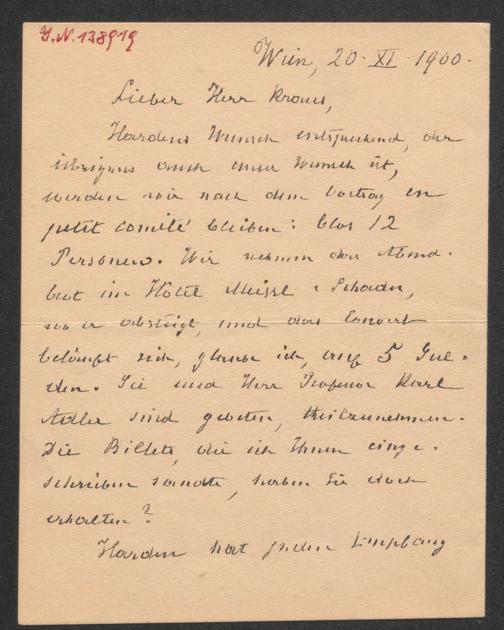 J.N. 138919
Wien, 20. XI. 1900.
Lieber Herr Kraus,
Hardens Wunsch entsprechend, der
übrigens auch unser Wunsch ist,
werden wir nach dem Vortrag en
petit comité bleiben: blos 12
Personen. Wir nehmen das Abend-
brot im Hôtel Meissl & Schadn,
wo er absteigt, und das Couvert
beläuft sich, glaube ich, auf 5 Gul-
den. Sie und Herr Professor Karl
Adler sind gebeten, theilzunehmen.
Die Billets, die ich Ihnen einge-
schrieben sandte, haben Sie doch
erhalten?
Harden hat jeden Empfang